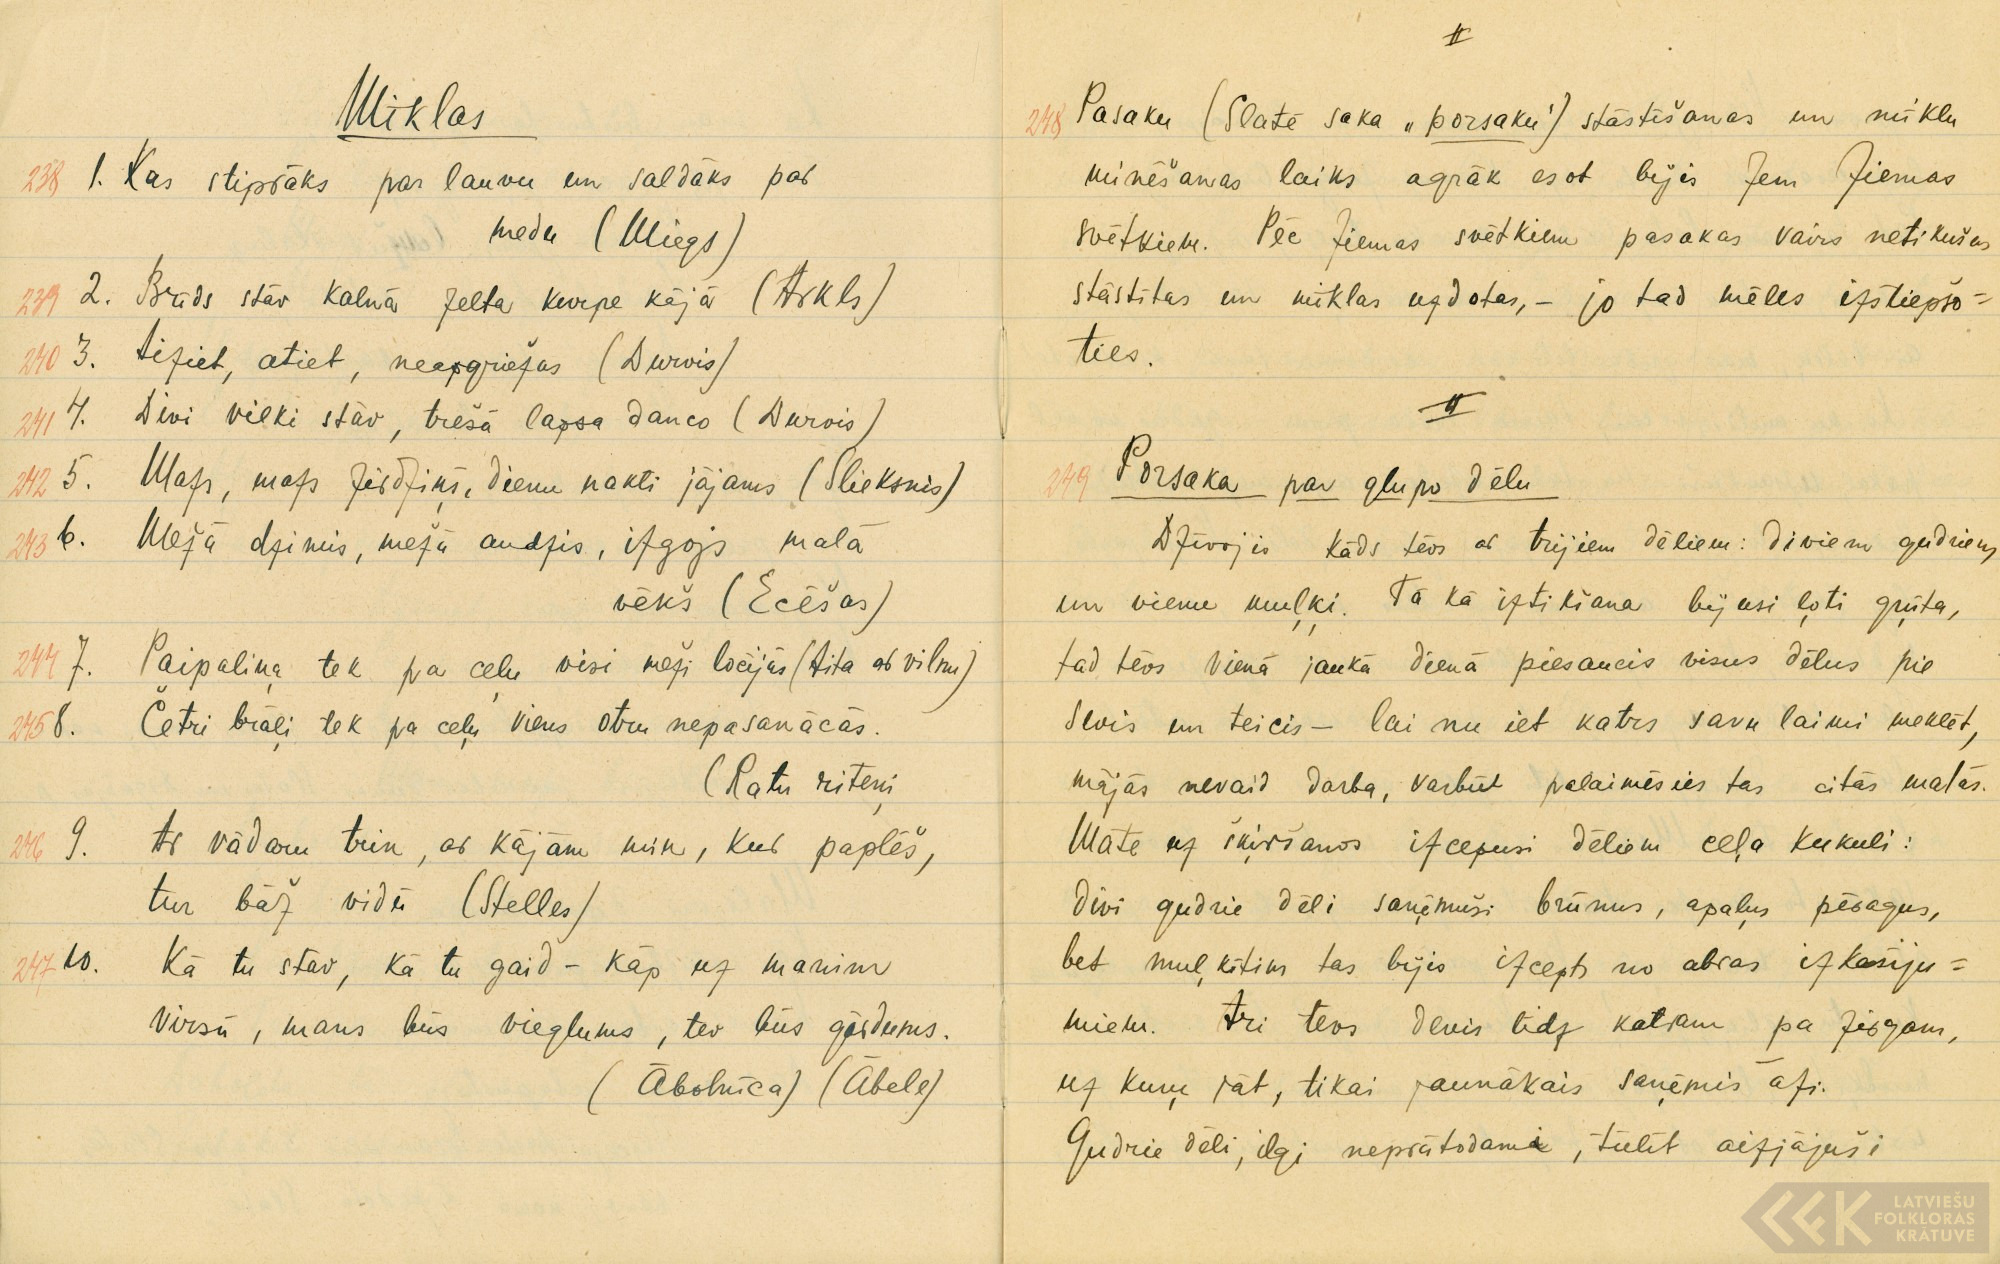 Mīklas
238 1. Kas stiprāks par lauvu un saldāks par
medu (Miegs)
239 2. Brūds stāv kalnā zelta kurpe kājā (Arkls)
240 3. Aiziet, atiet, neapgriežas (Durvis)
241 4. Divi vilki stāv, trešā lapsa danco (Durvis)
242 5. Mazs, mazs zirdziņš, dienu nakti jājams (Slieksnis)
243 6. Mežā dzimis, mežā audzis, izgājs malā
vēkš (Ecēšas)
244 7. Paipaliņa tek pa ceļu visi meži locījās (Aita ar vilnu)
245 8. Četri brāļi tek pa ceļu viens otru nepasanācās.
(Ratu riteņi
246 9. Ar vādaru trin, ar kājām min, kur paplēš,
tur bāž vidū (Stelles)
247 10. Kā tu stāv, kā tu gaid – kāp uz manim
virsū, mans būs vieglums, tev būs gārdums.
(Ābolnīca) (Ābele)
II
248 Pasaku (Slatē saka „porsaku") stāstīšanas un mīklu
minēšanas laiks agrāk esot bijis zem Ziemas
svētkiem. Pēc Ziemas svētkiem pasakas vairs netikušas
stāstītas un mīklas uzdotas, – jo tad mēles izstiepšo=
ties.
II
249 Porsaka par glupo dēlu
Dzīvojis kāds tēvs ar trijiem dēliem: diviem gudriem
un vienu muļķi. Tā kā iztikšana bijusi ļoti grūta,
tad tēvs vienā jaukā dienā piesaucis visus dēlus pie
sevis un teicis – lai nu iet katrs savu laimi meklēt,
mājās nevaid darba, varbūt palaimēsies tas citās malās.
Māte uz šķiršanos izcepusi dēliem ceļa kukuli:
divi gudrie dēli saņēmuši brūnus, apaļus pēragus,
bet muļķītim tas bijis izcepts no abras izkasīju=
miem. Arī tēvs devis līdz katram pa zirgam,
uz kuru jāt, tikai jaunākais saņēmis āzi.
Gudrie dēli, ilgi neprātodami, tūlīt aizjājuši
LATVIEŠU
FOLKLORAS
KRĀTUVE